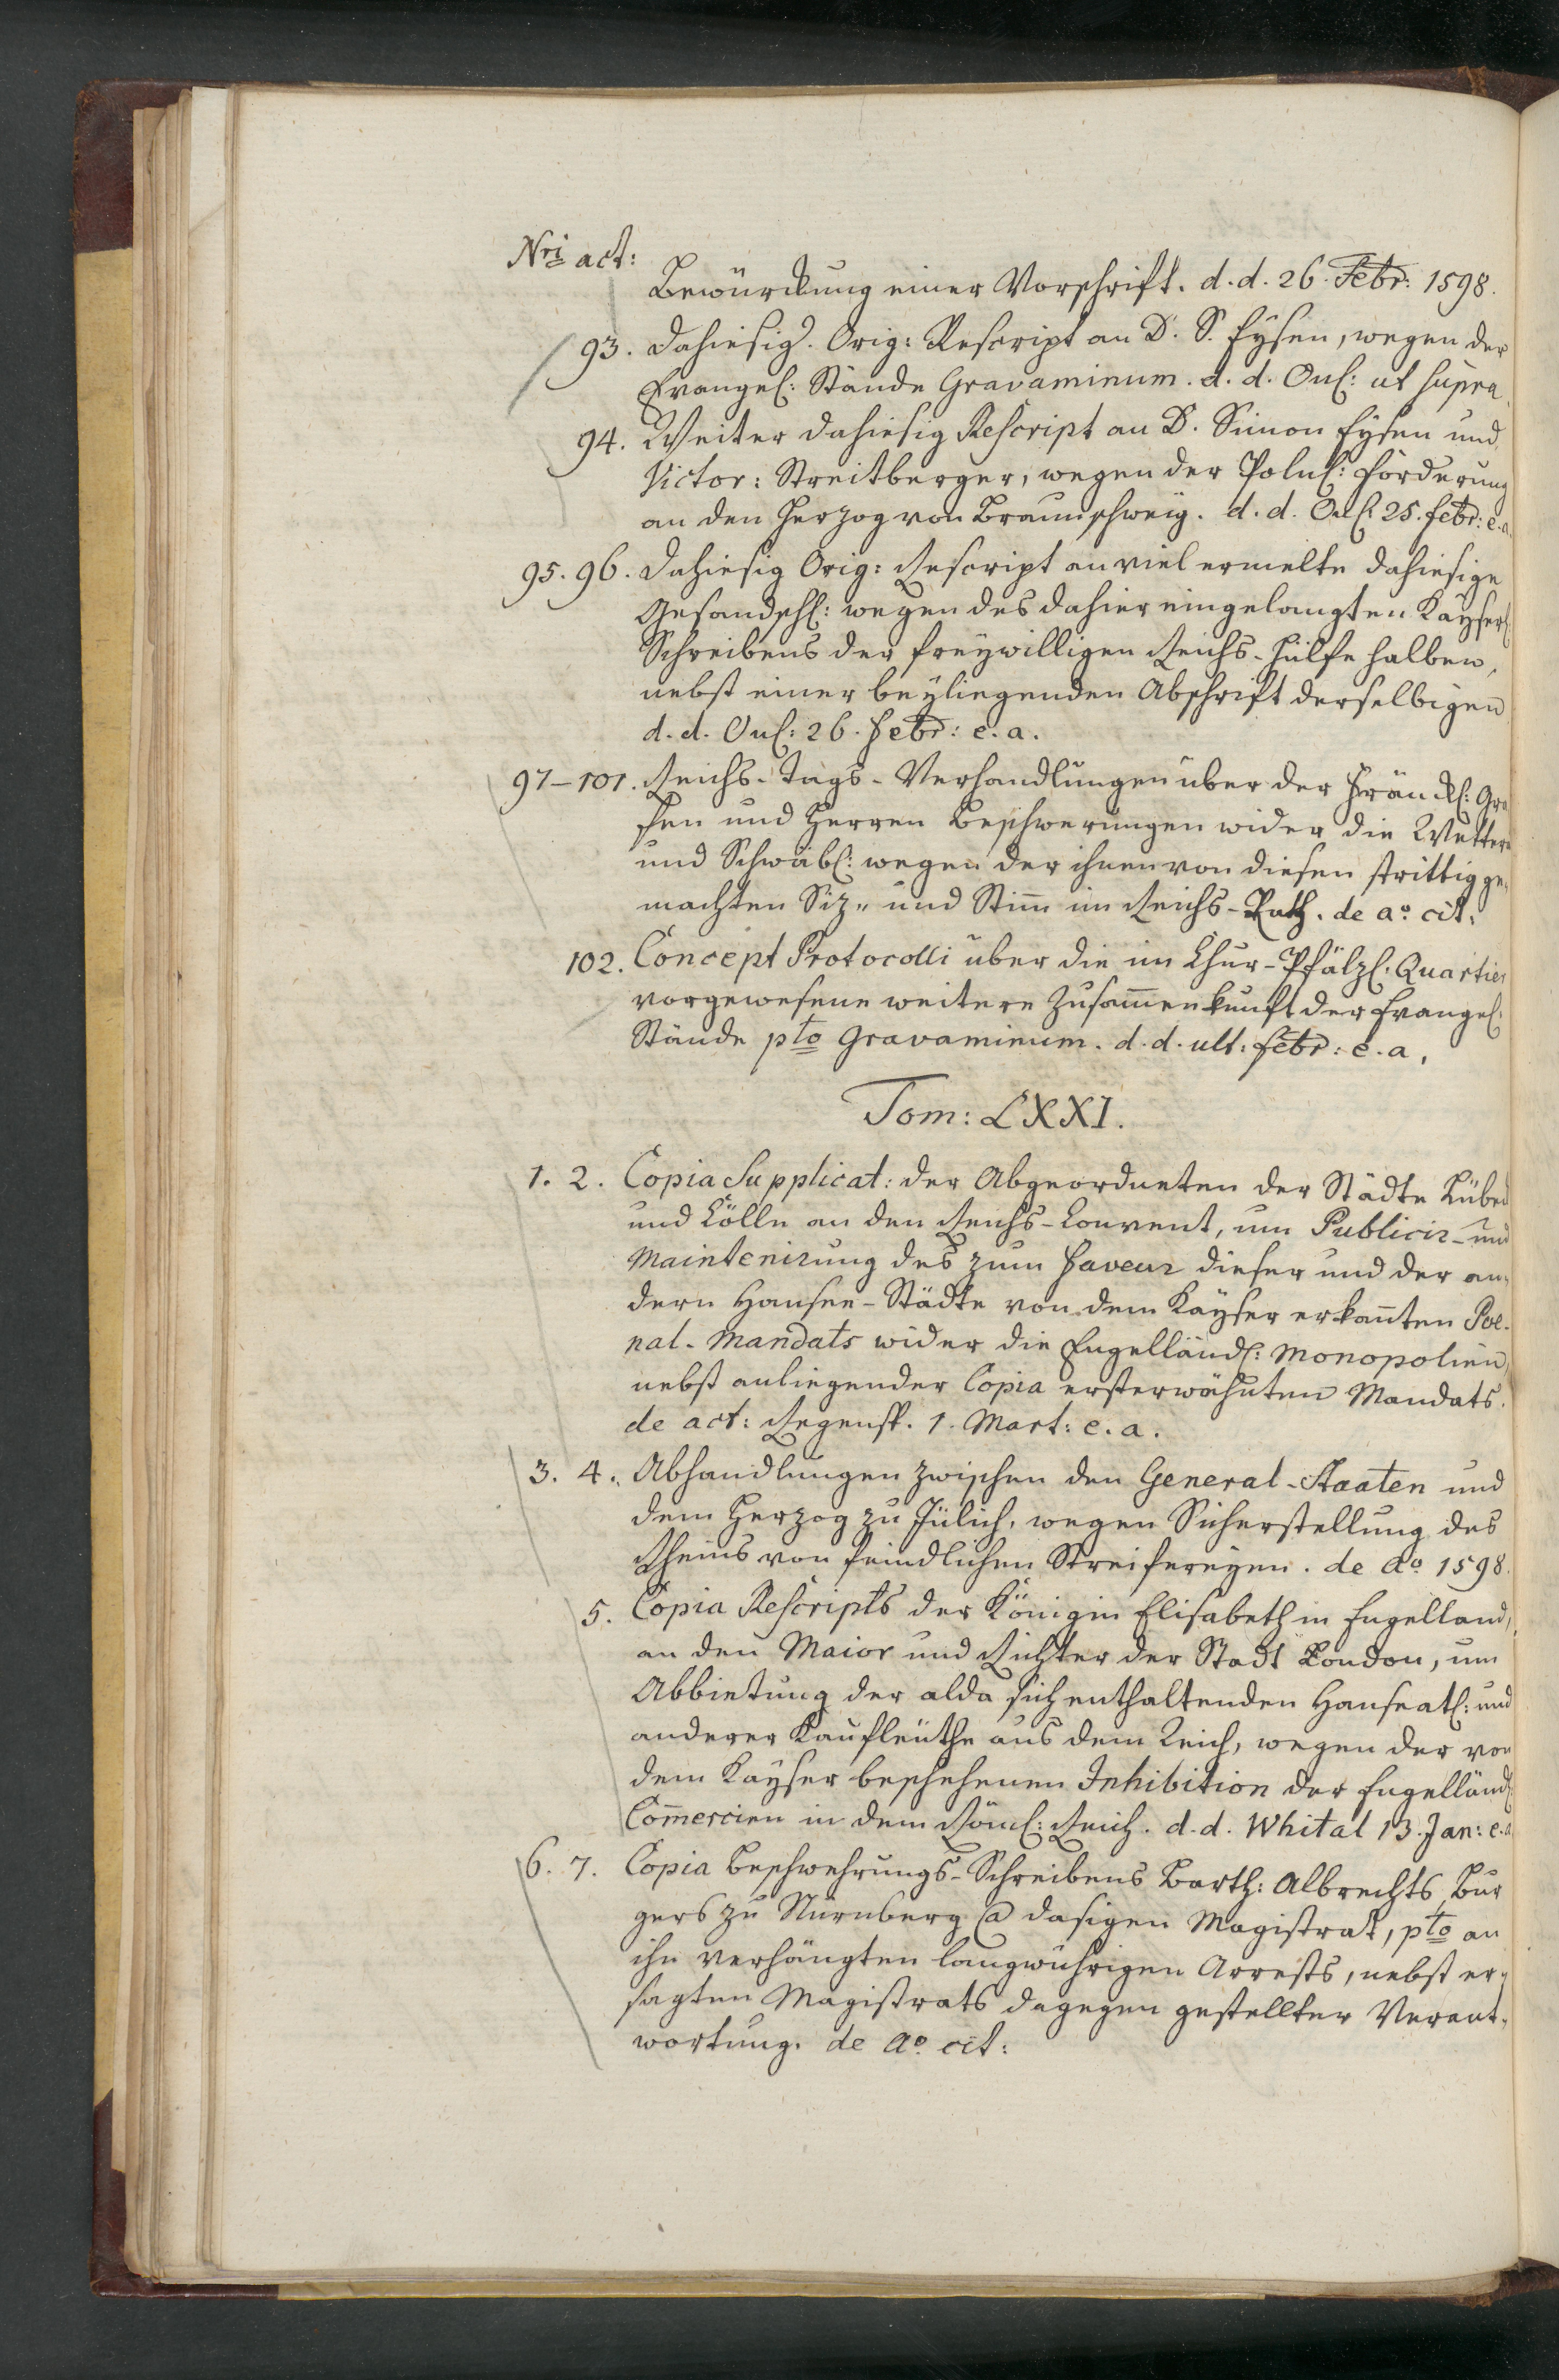 Nri act:
Bewürckung einer Vorschrifft. d. d. 26. Febr: 1598.
93. Dahiesig. Orig: Rescript an D. S. Eysen, wegen der
Evangel: Stände Gravaminum. d. d. Onl: ut supra.
94. Weiter dahiesig Rescript an D. Simon Eysen und
Victor: Streitberger, wegen der Poln: Forderung
an den Herzog von Braunschweig. d. d. Onl: 25. Febr: e. a.
95. 96. Dahiesig Orig: Rescript an viel ermelte dahiesige
Gesandsch: wegen des dahier eingelangten Kayserl:
Schreibens der freywilligen Reichs-Hülfe halben,
nebst einer beyliegenden Abschrift derselbigen
d. d. Onl: 26. Febr: e. a.
97–101. Reichs-Tags-Verhandlungen über der Fränckl: Gra
fen und Herren Beschwerungen wider die Wetter
und Schwäb: wegen der ihnen von diesen strittig ge¬
machten Siz- und Stim̅ im Reichs-Rath. de ao. cit:
102. Concept Protocolli über die im Chur-Pfälzl. Quartier
vorgewesene weitere Zusam̅enkunft der Evangel:
Stände pto Gravaminum. d. d. ult: Febr: e. a.
Tom: LXXI.
1. 2. Copia Supplicat: der Abgeordneten der Städte Lübec
und Cölln an den Reichs-Convent, um Publicir- und
Maintenirung des zum Faveur dieser und der an¬
dern Hansee-Städte von dem Kayser erkan̅ten Poe-
nal-Mandats wider die Engelländ: Monopolien,
nebst anliegender Copia ersterwähnten Mandats.
de act: Regensp. 1. Mart: e. a.
3. 4. Abhandlungen zwischen den General-Staaten und
dem Herzog zu Jülich, wegen Sicherstellung des
Rheins von feindlichen Streifereyen. de Ao. 1598.
5. Copia Rescripts der Königin Elisabeth in Engelland,
an den Maior und Richter der Stadt London, um
Abbietung der alda sich enthaltenden Hanseat: und
anderer Kaufleüthe aus dem Reich, wegen der von
dem Kayser beschehenen Inhibition der Engelländ:
Com̅ercien in dem Röml: Reich. d. d. Whital 13. Jan: e. a
6. 7. Copia Beschwehrungs-Schreibens Barth: Albrechts Bur
gers zu Nürnberg @ dasigen Magistrat, pto an
ihn verhängten langwührigen Arrests, nebst er¬
sagten Magistrats dagegen gestellter Verant¬
wortung. de Ao. cit: